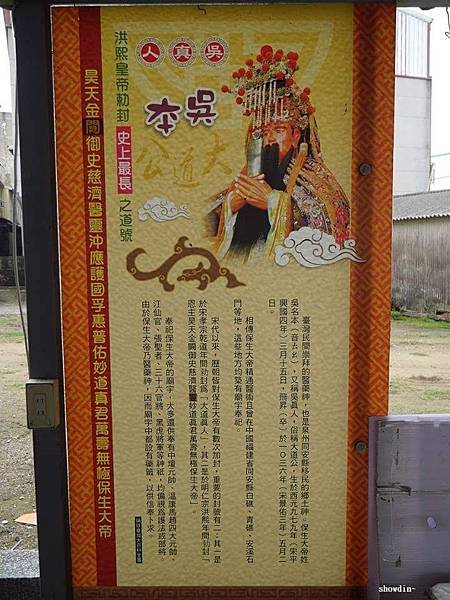 吳真人
吳本
大道公
洪熙皇帝勅封史上最長之道號
昊天金闕御史慈濟醫靈沖應護國孚惠普佑妙道真君萬壽無極保生大帝
臺灣民間崇拜的醫藥神，也是泉州同安縣移民的鄉土神。保生大帝姓
吳名本（音ㄊㄠ），又稱吳真人，俗稱大道公，生於西元九七九年（宋平
興國四年）三月十五日，簡昇（卒）於一○三六年（宋景佑三年）五月二
日。
相傳保生大帝精通醫術且曾在中國福建省同安縣白礁、青礁、安溪石
門等地，這些地方均築有廟宇奉祀。
宋代以來，歷朝皆對保生大帝有數次加封，重要的封號有二：其一是
於宋孝宗乾道年間勅封爲「大道真人」，其二是於明仁宗洪熙年間勅封「
恩主昊天金闕御史慈濟醫靈妙道真君萬壽無極保生大帝」。
奉祀保生大帝的廟宇，大多還供奉有中壇元帥、溫康馬趙四大元帥、
江仙官、張聖者、三十六官將、黑虎將軍等神祇，均偏視爲護法或部將。
由於保生大帝乃醫藥神，因而廟宇中都設有藥籤，以供信奉卜求。
showdin~